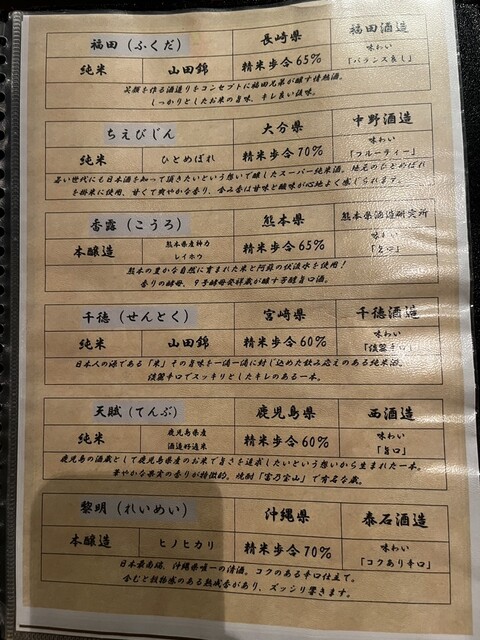 福田(ふくだ) 長崎県 福田酒造
純米 山田錦 精米歩合65% 味わい
「バランス良し」
笑顔を作る酒造りをコンセプトに福田兄弟が醸す情熱酒。
しっかりとしたお米の旨味、キレ良い後味。
ちえびじん 大分県 中野酒造
純米 ひとめぼれ 精米歩合70% 味わい
「フルーティー」
若い世代にも日本酒を知って頂きたいという想いで醸したスーパー純米酒。地元のひとめぼれ
を掛米に使用、甘くて爽やかな香り、含み香は甘味と酸味が心地よく感じられます。
香露(こうろ) 熊本県 熊本県酒造研究所
本醸造 熊本県産神力
レイホウ 精米歩合65% 味わい
「旨口」
熊本の豊かな自然に育まれた米と阿蘇の伏流水を使用!
香りの酵母、9号酵母発祥蔵が醸す芳醇旨口酒。
千徳(せんとく) 宮崎県 千徳酒造
純米 山田錦 精米歩合60% 味わい
「淡麗辛口」
日本人の源である「米」その旨味を一滴一滴に封じ込めた飲み応えのある純米酒。
淡麗辛口でスッキリとしたキレのある一本。
天賦(てんぶ) 鹿児島県 西酒造
純米 鹿児島県産
酒造好適米 精米歩合60% 味わい
「旨口」
鹿児島の酒蔵として鹿児島県産のお米で旨さを追求したいという想いから生まれた一本。
華やかな果実の香りが特徴的。焼酎「富乃宝山」で有名な蔵。
黎明(れいめい) 沖縄県 泰石酒造
本醸造 ヒノヒカリ 精米歩合70% 味わい
「コクあり辛口」
日本最南端、沖縄県唯一の清酒。コクのある辛口仕立て。
含むと穀物感のある熟成香があり、ズッシリ響きます。